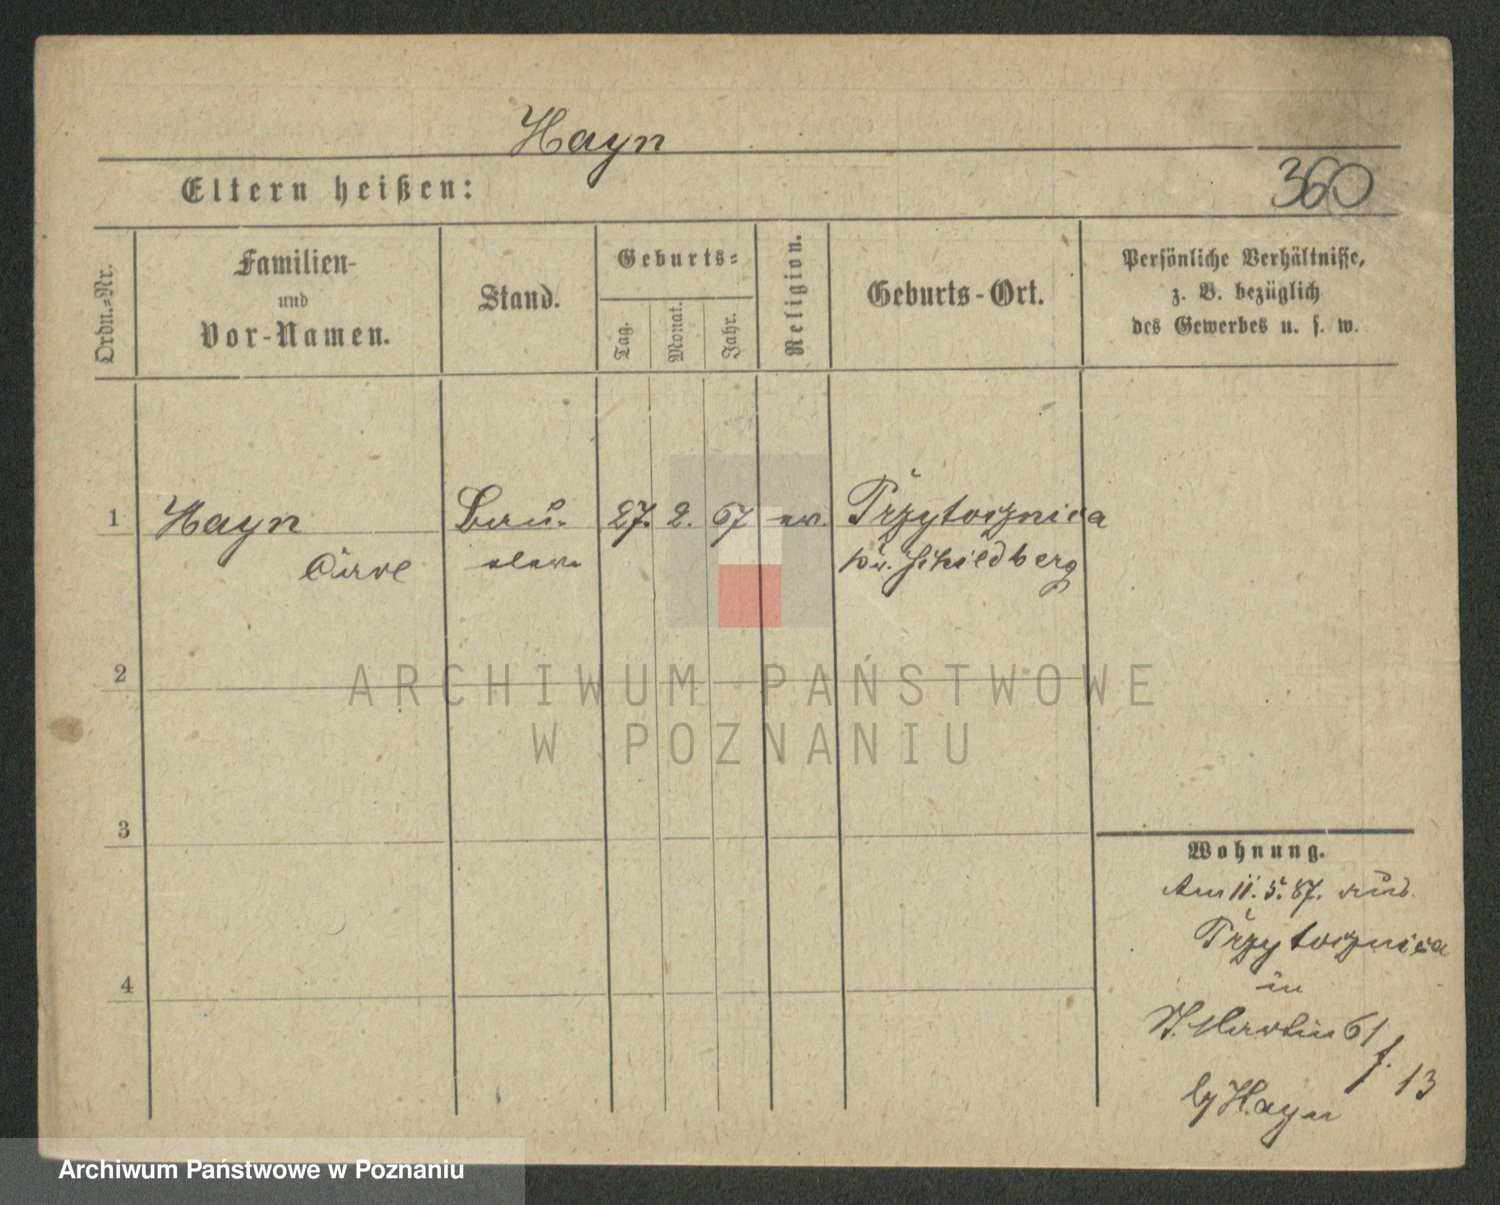 Hayn
Eltern heißen:
360
Ordn.-Nr.
Familien-
und
Vor-Namen.
Stand.
Geburts-
Tag.
Monat.
Jahr.
Religion.
Geburts-Ort.
Persönliche Verhältnisse,
z. B. bezüglich
des Gewerbes u. s. w.
1 Hayn Bau- 27. 2. 67 ev. Przytocznica
eleve Kr. Schildberg
2
ARCHIWUM PAŃSTWOWE
W POZNANIU
3
4
Wohnung.
Am 11.5.87. aus
Przytocznica
in
St. Martin 61
f. 13
by Hayn
Archiwum Państwowe w Poznaniu